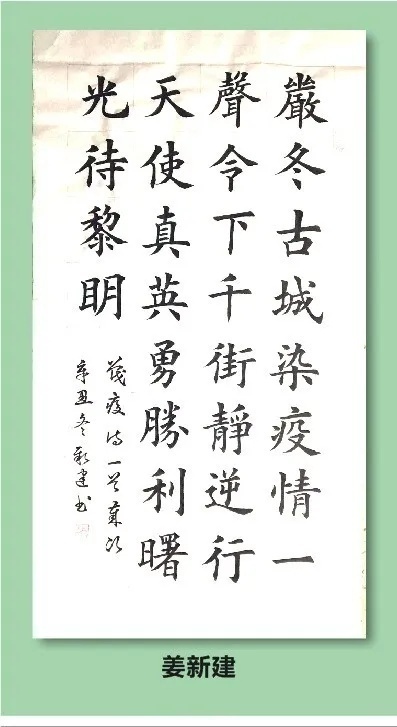 嚴冬古城染疫情一
聲令下千街靜逆行
天使真英勇勝利曙
光待黎明
疫诗一首
辛丑冬新建书
姜新建